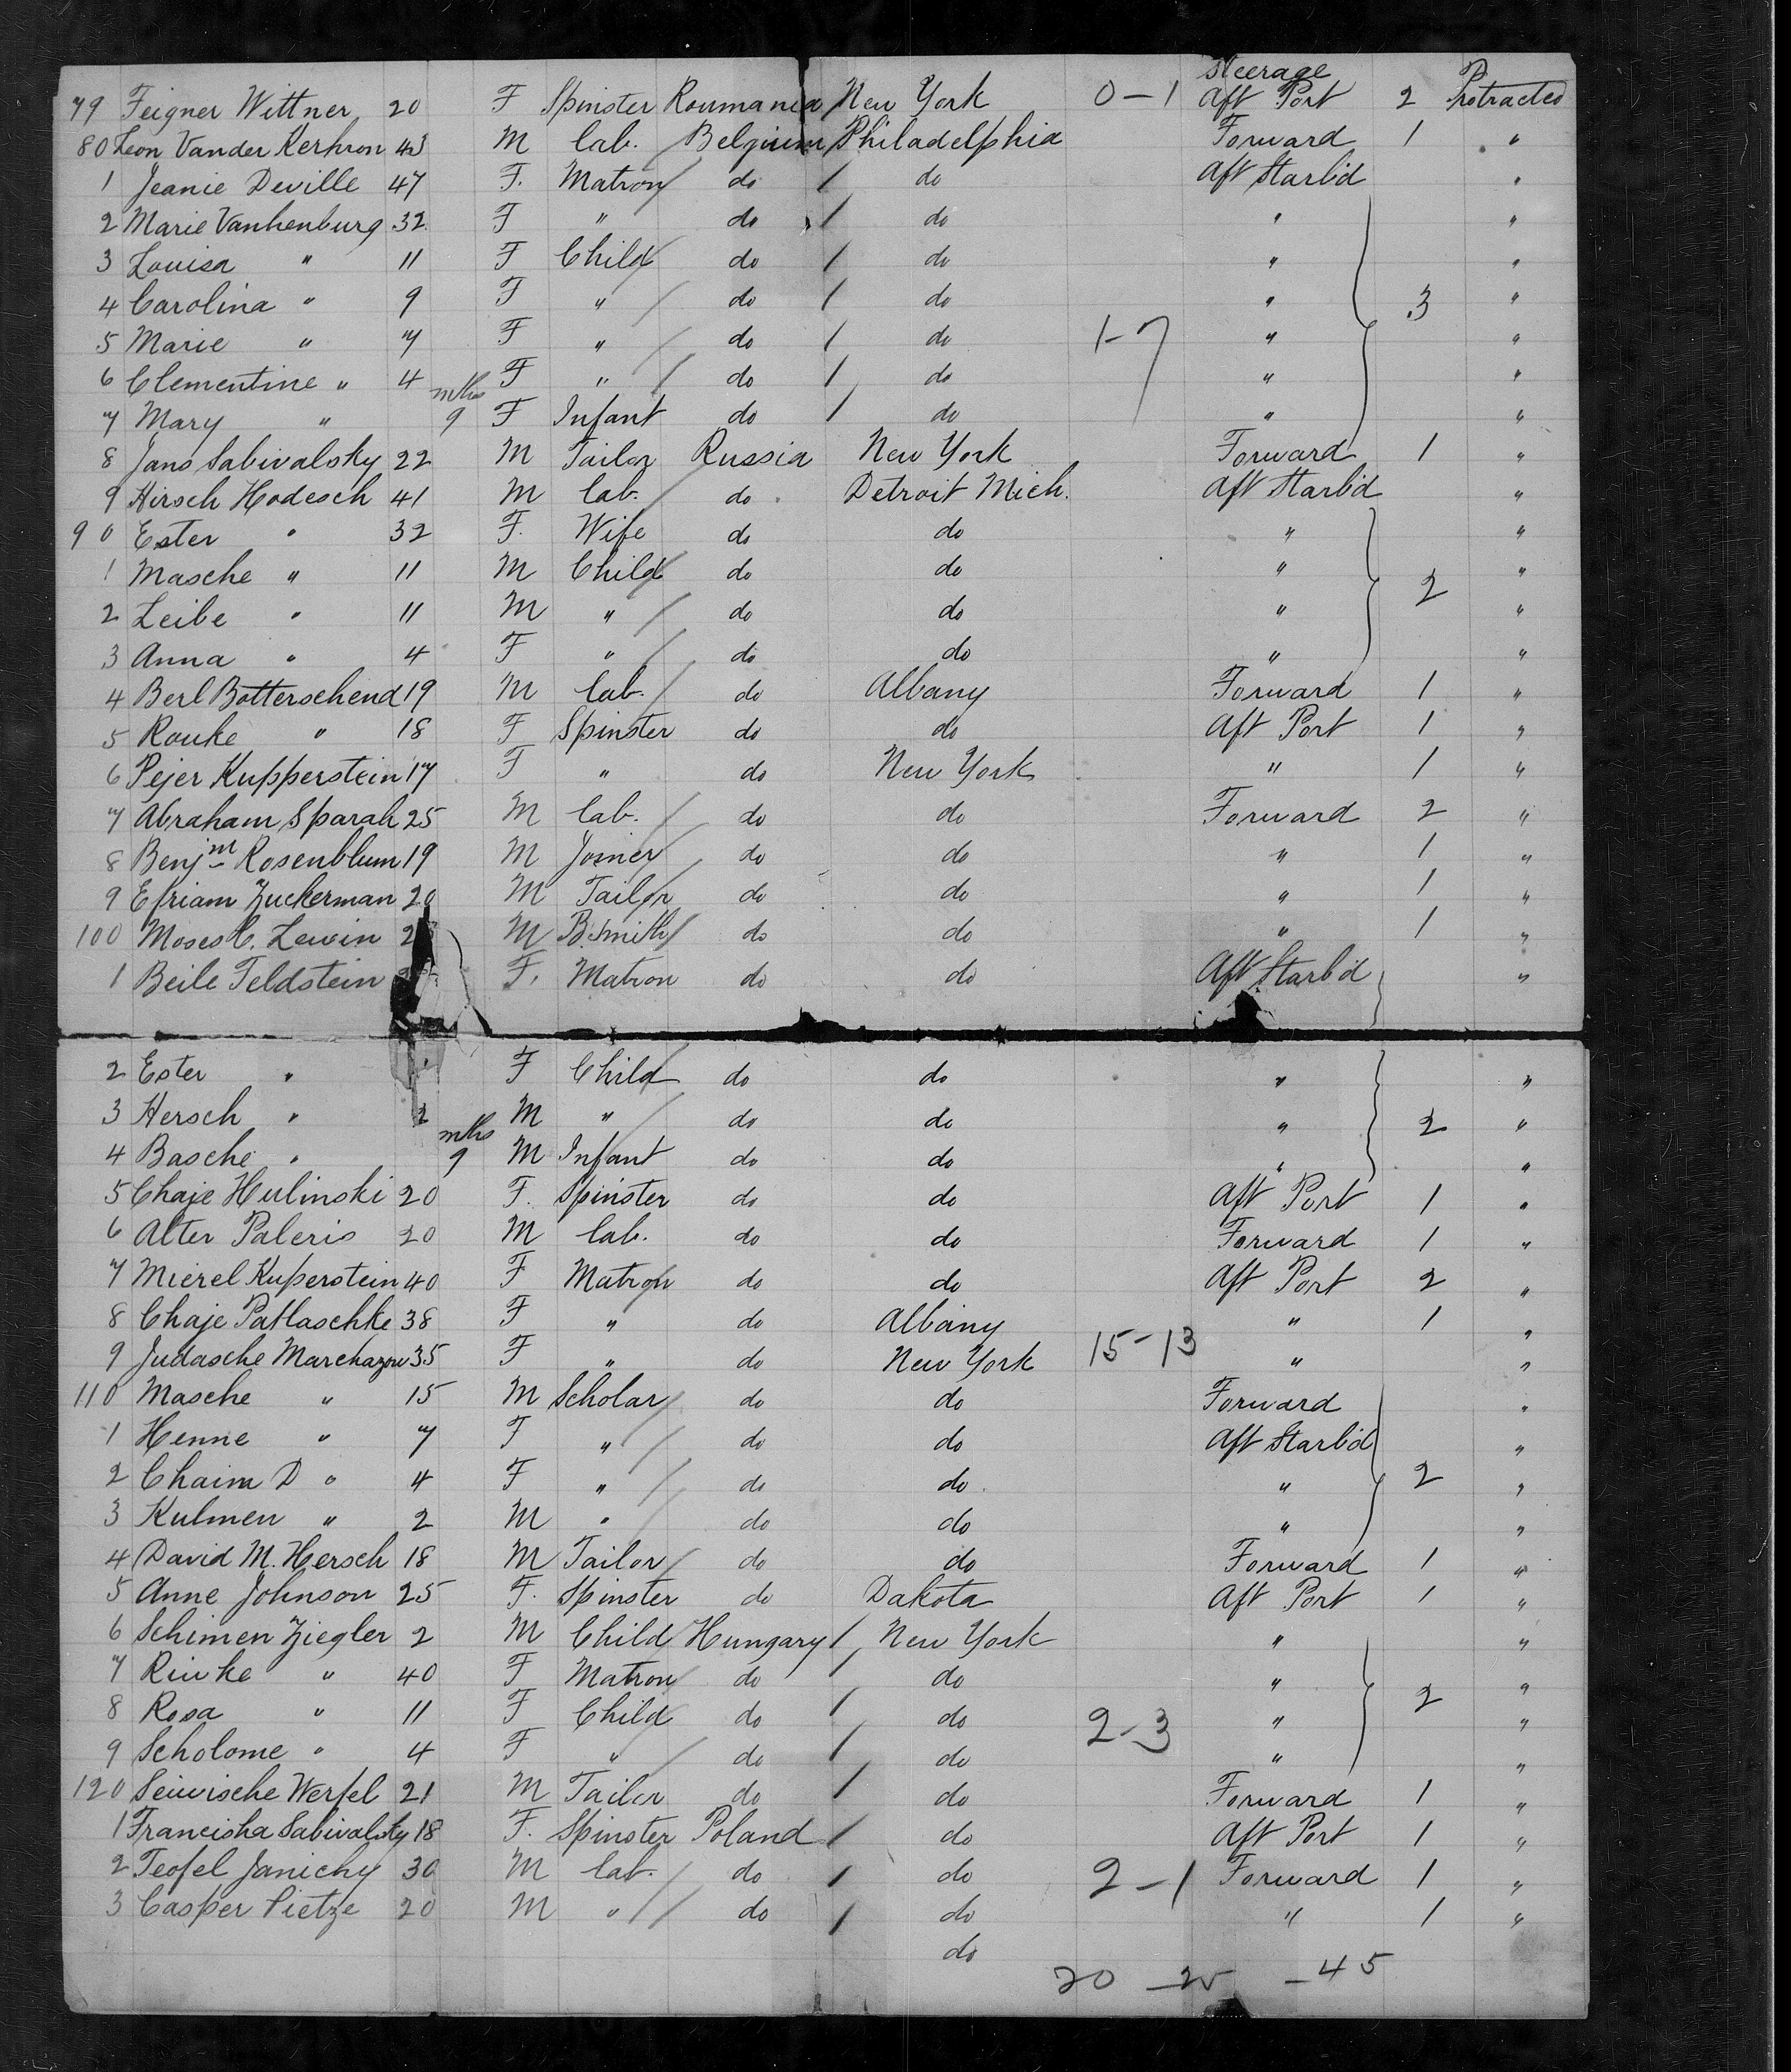 Steerage
79 Feigner Wittner 20 F Spinster Roumania New York 0-1 Aft Port 2 Protracted
80 Leon Vander Kerhron 43 M Lab. Belgium Philadelphia Forward 1 "
1 Jeanie Deville 47 F. Matron do do Aft Starb'd "
2 Marie Vanhenburg 32 F " do do " "
3 Louisa " 11 F Child do do " "
4 Carolina " 9 F " do do " 3 "
5 Marie " 7 F " do do 1-7 " "
6 Clementine " 4 F " do do " "
7 Mary " mths 9 F Infant do do " "
8 Jans Sabivalsky 22 M Tailor Russia New York Forward 1 "
9 Hirsch Hodesch 41 M Lab. do Detroit Mich. Aft Starb'd "
90 Ester " 32 F. Wife do do " "
1 Masche " 11 M Child do do " "
2 Leibe " 11 M " do do " 2 "
3 Anna " 4 F " do do " "
4 Berl Botterschend 19 M Lab. do Albany Forward 1 "
5 Rouke " 18 F Spinster do do Aft Port 1 "
6 Pejer Kupperstein 17 F " do New York " 1 "
7 Abraham Sparah 25 M Lab. do do Forward 2 "
8 Benjm Rosenblum 19 M Joiner do do " 1 "
9 Efriam Zuckerman 20 M Tailor do do " 1 "
100 Moses Lewin M B.Smith do do " 1 "
1 Beile Feldstein F. Matron do do Aft Starb'd "
2 Ester " F Child do do " "
3 Hersch " 2 M " do do " 2 "
4 Basche " mths 9 M Infant do do " "
5 Chaje Hulinski 20 F. Spinster do do Aft Port 1 "
6 Alter Paleris 20 M Lab. do do Forward 1 "
7 Mierel Kuperstein 40 F Matron do do Aft Port 2 "
8 Chaje Patlaschke 38 F " do Albany " 1 "
9 Judasche Marchazow 35 F " do New York 15-13 " "
110 Masche " 15 M Scholar do do Forward "
1 Henne " 7 F " do do Aft Starb'd "
2 Chaim D " 4 F " do do " 2 "
3 Kulmen " 2 M " do do " "
4 David M. Hersch 18 M Tailor do do Forward 1 "
5 Anne Johnson 25 F. Spinster do Dakota Aft Port 1 "
6 Schimen Ziegler 2 M Child Hungary New York " "
7 Rivke " 40 F Matron do do " 2 "
8 Rosa " 11 F Child do do 2-3 " "
9 Scholome " 4 F " do do " "
120 Seiwische Werfel 21 M Tailor do do Forward 1 "
1 Francisha Sabivalsky 18 F. Spinster Poland do Aft Port 1 "
2 Teofel Janichy 30 M Lab. do do 2-1 Forward 1 "
3 Casper Pietze 20 M " do do " 1 "
do
20 - 25 - 45